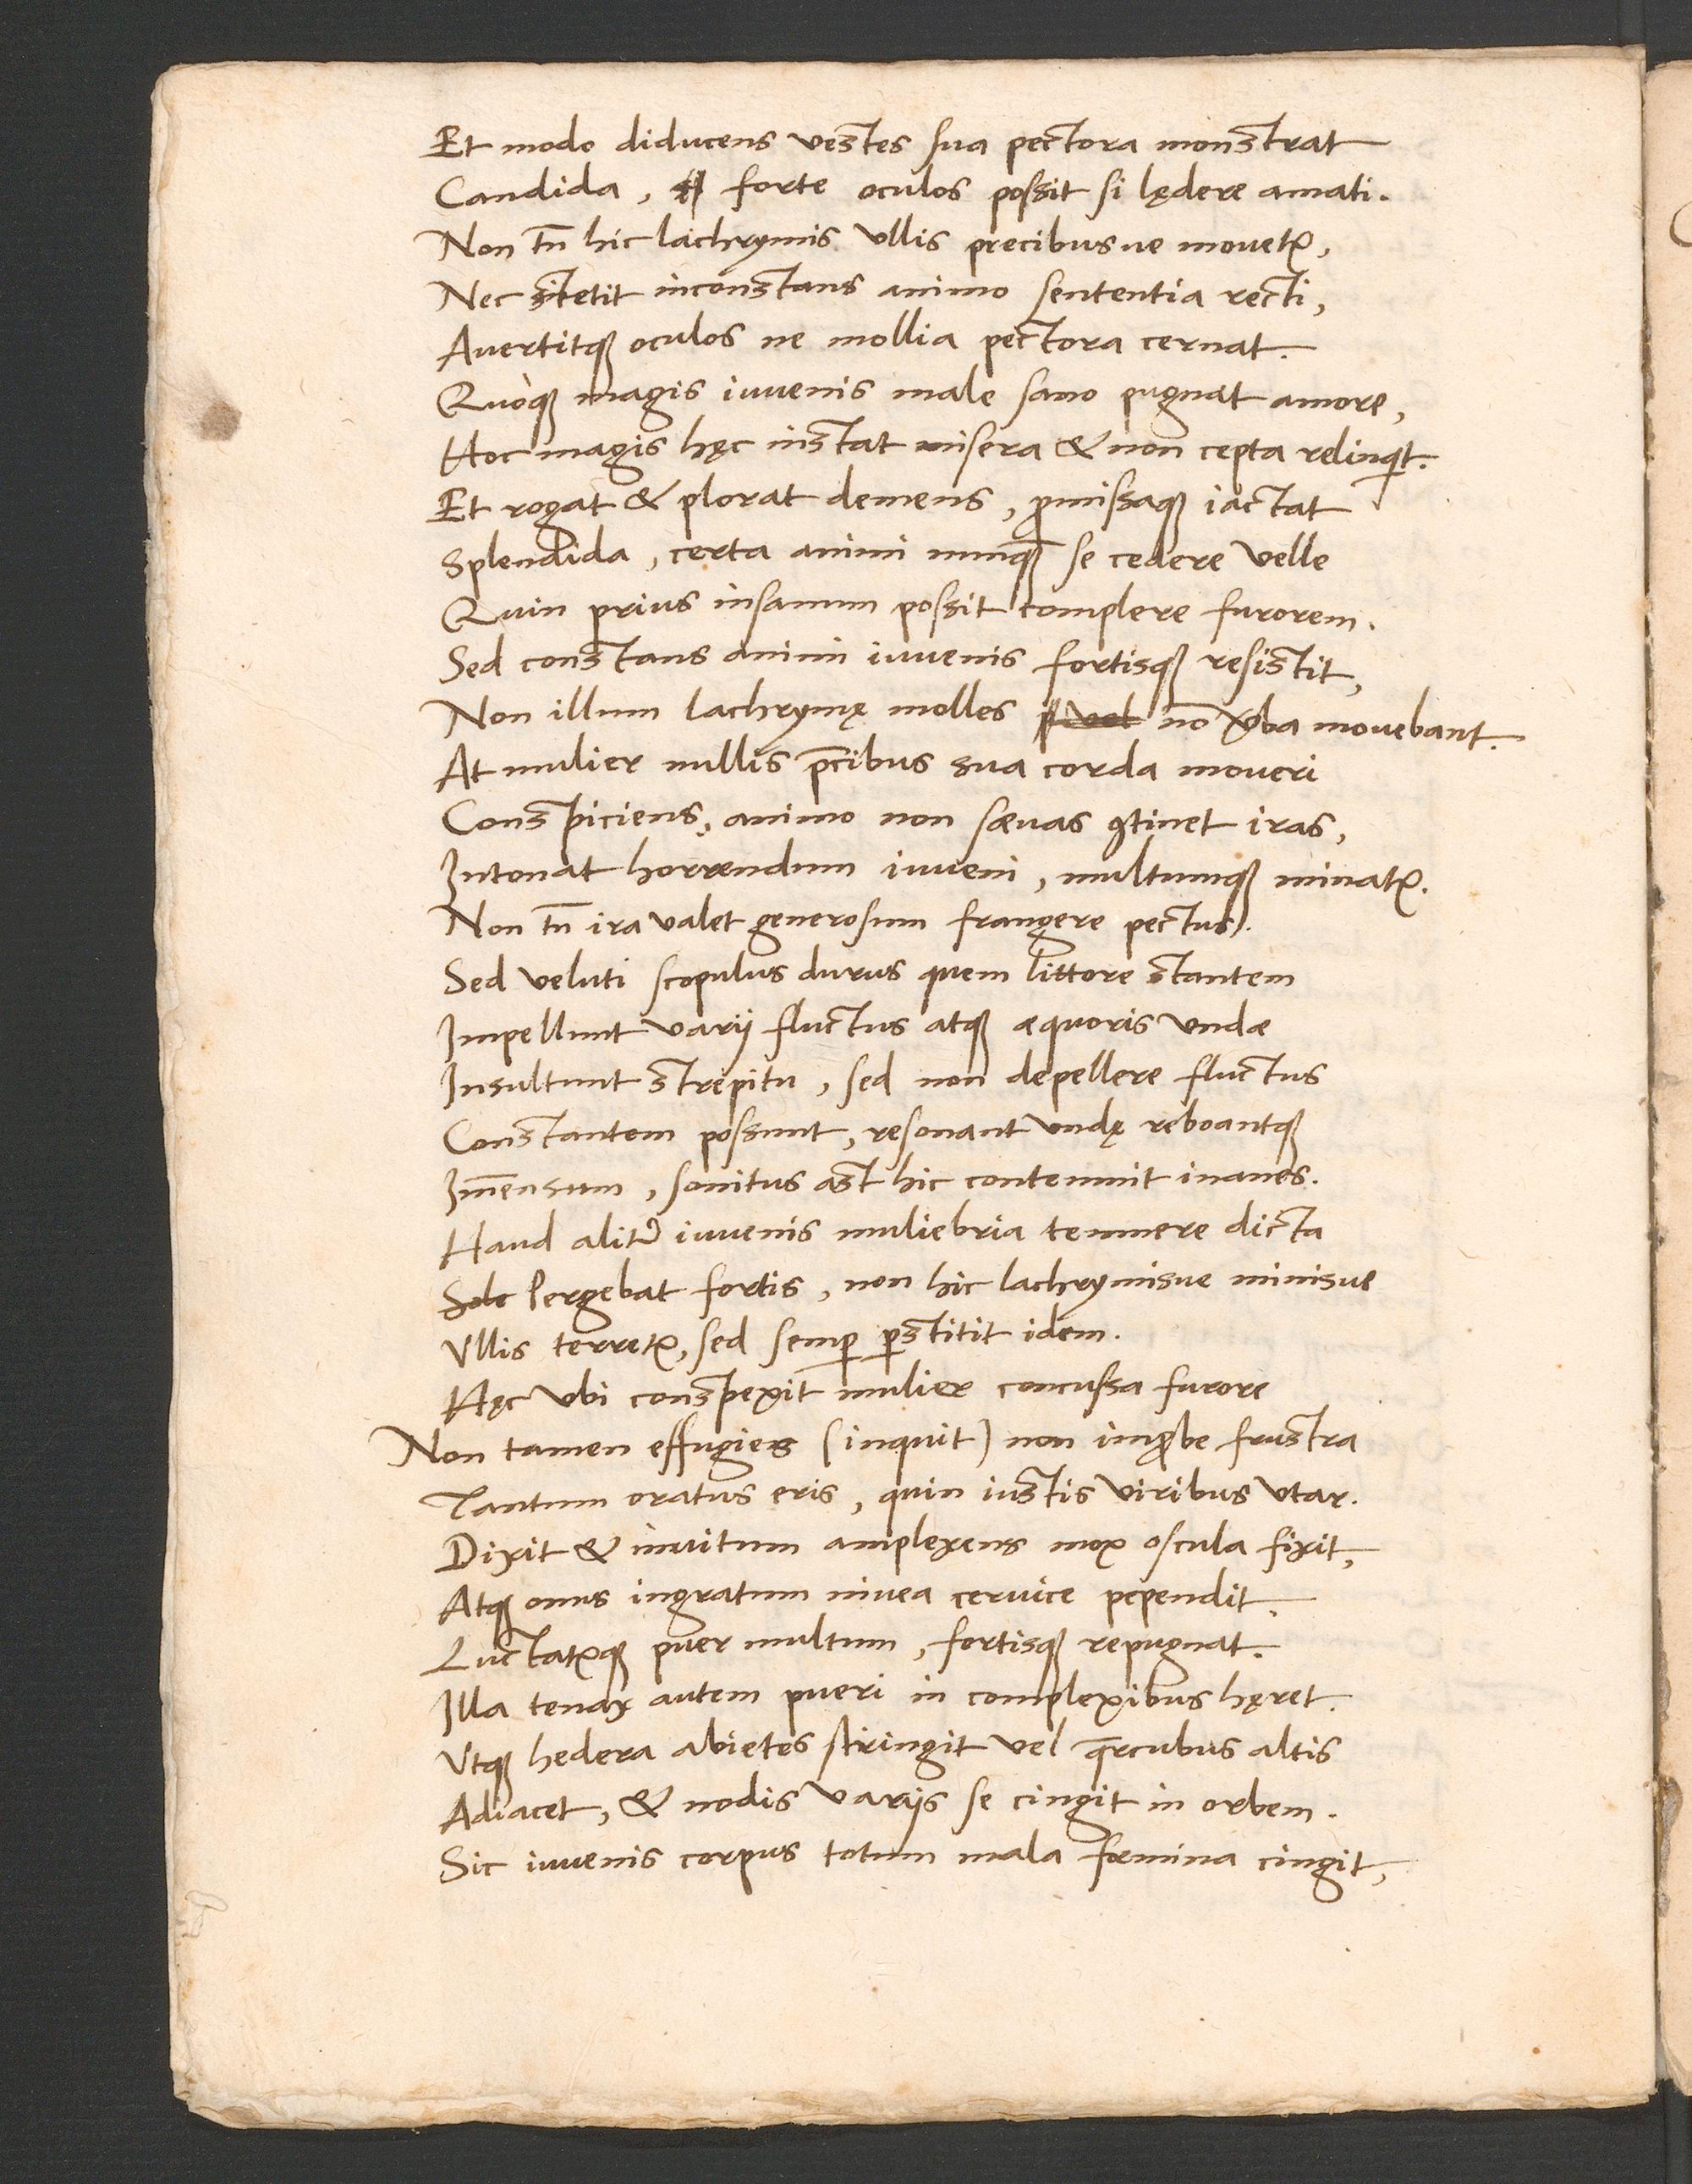 Et modo diducens vestes sua pectora monstrat
Candida, forte oculos possit si lędere amati.
Non tn̄ hic lachrymis ullis precibusue mouetꝛ,
Nec stetit inconstans animo sententia recti,
Auertitqꝫ oculos ne mollia pectora cernat.
Quòqꝫ magis iuvenis male sano pugnat amore,
Hoc magis hęc instat misera & non cepta relinqͥt.
Et rogat & plorat demens, ꝓmissaqꝫ iactat
Splendida, certa animi nunqꝫ̄ se cedere velle
Quin prius insanum possit complere furorem.
Sed constans animi iuvenis fortisqꝫ resistit,
Non illum lachrymę molles vel nō v̄ba mouebant.
At mulier nullis p̄cibus sua corda moveri
Conspiciens, animo non sæuas ꝯtinet iras,
Intonat horrendum iuveni, multumqꝫ minatꝛ.
Non tn̄ ira valet generosum frangere pectus.
Sed veluti scopulus durus quem littore stantem
Impellunt varij fluctus atqꝫ æquoris undæ
Insultunt strepitu, sed non depellere fluctus
Constantem possunt, resonant undę reboantqꝫ
Im̄ensum, sonitus ast hic contemnit inanes.
Haud alit᷑ iuvenis muliebria temnere dicta
Sole Pergebat fortis, non hic lachrymisue minisue
Ullis terretꝛ, sed semꝑ ꝑstitit idem.
Hęc ubi conspexit mulier concussa furore
Non tamen effugies (inquit) non imꝓbe frustra
Tantum oratus eris, quin iustis viribus utar.
Dixit & invitum amplexens mox oscula fixit,
Atqꝫ onus ingratum nivea cervice pependit.
Luctatꝛqꝫ puer multum, fortisqꝫ repugnat.
Illa tenax autem pueri in complexibus hęret.
Utqꝫ hedera abietes stringit vel q̄rcubus altis
Adiacet, & nodis varijs se cingit in orbem.
Sic iuvenis corpus totum mala fœmina cingit,